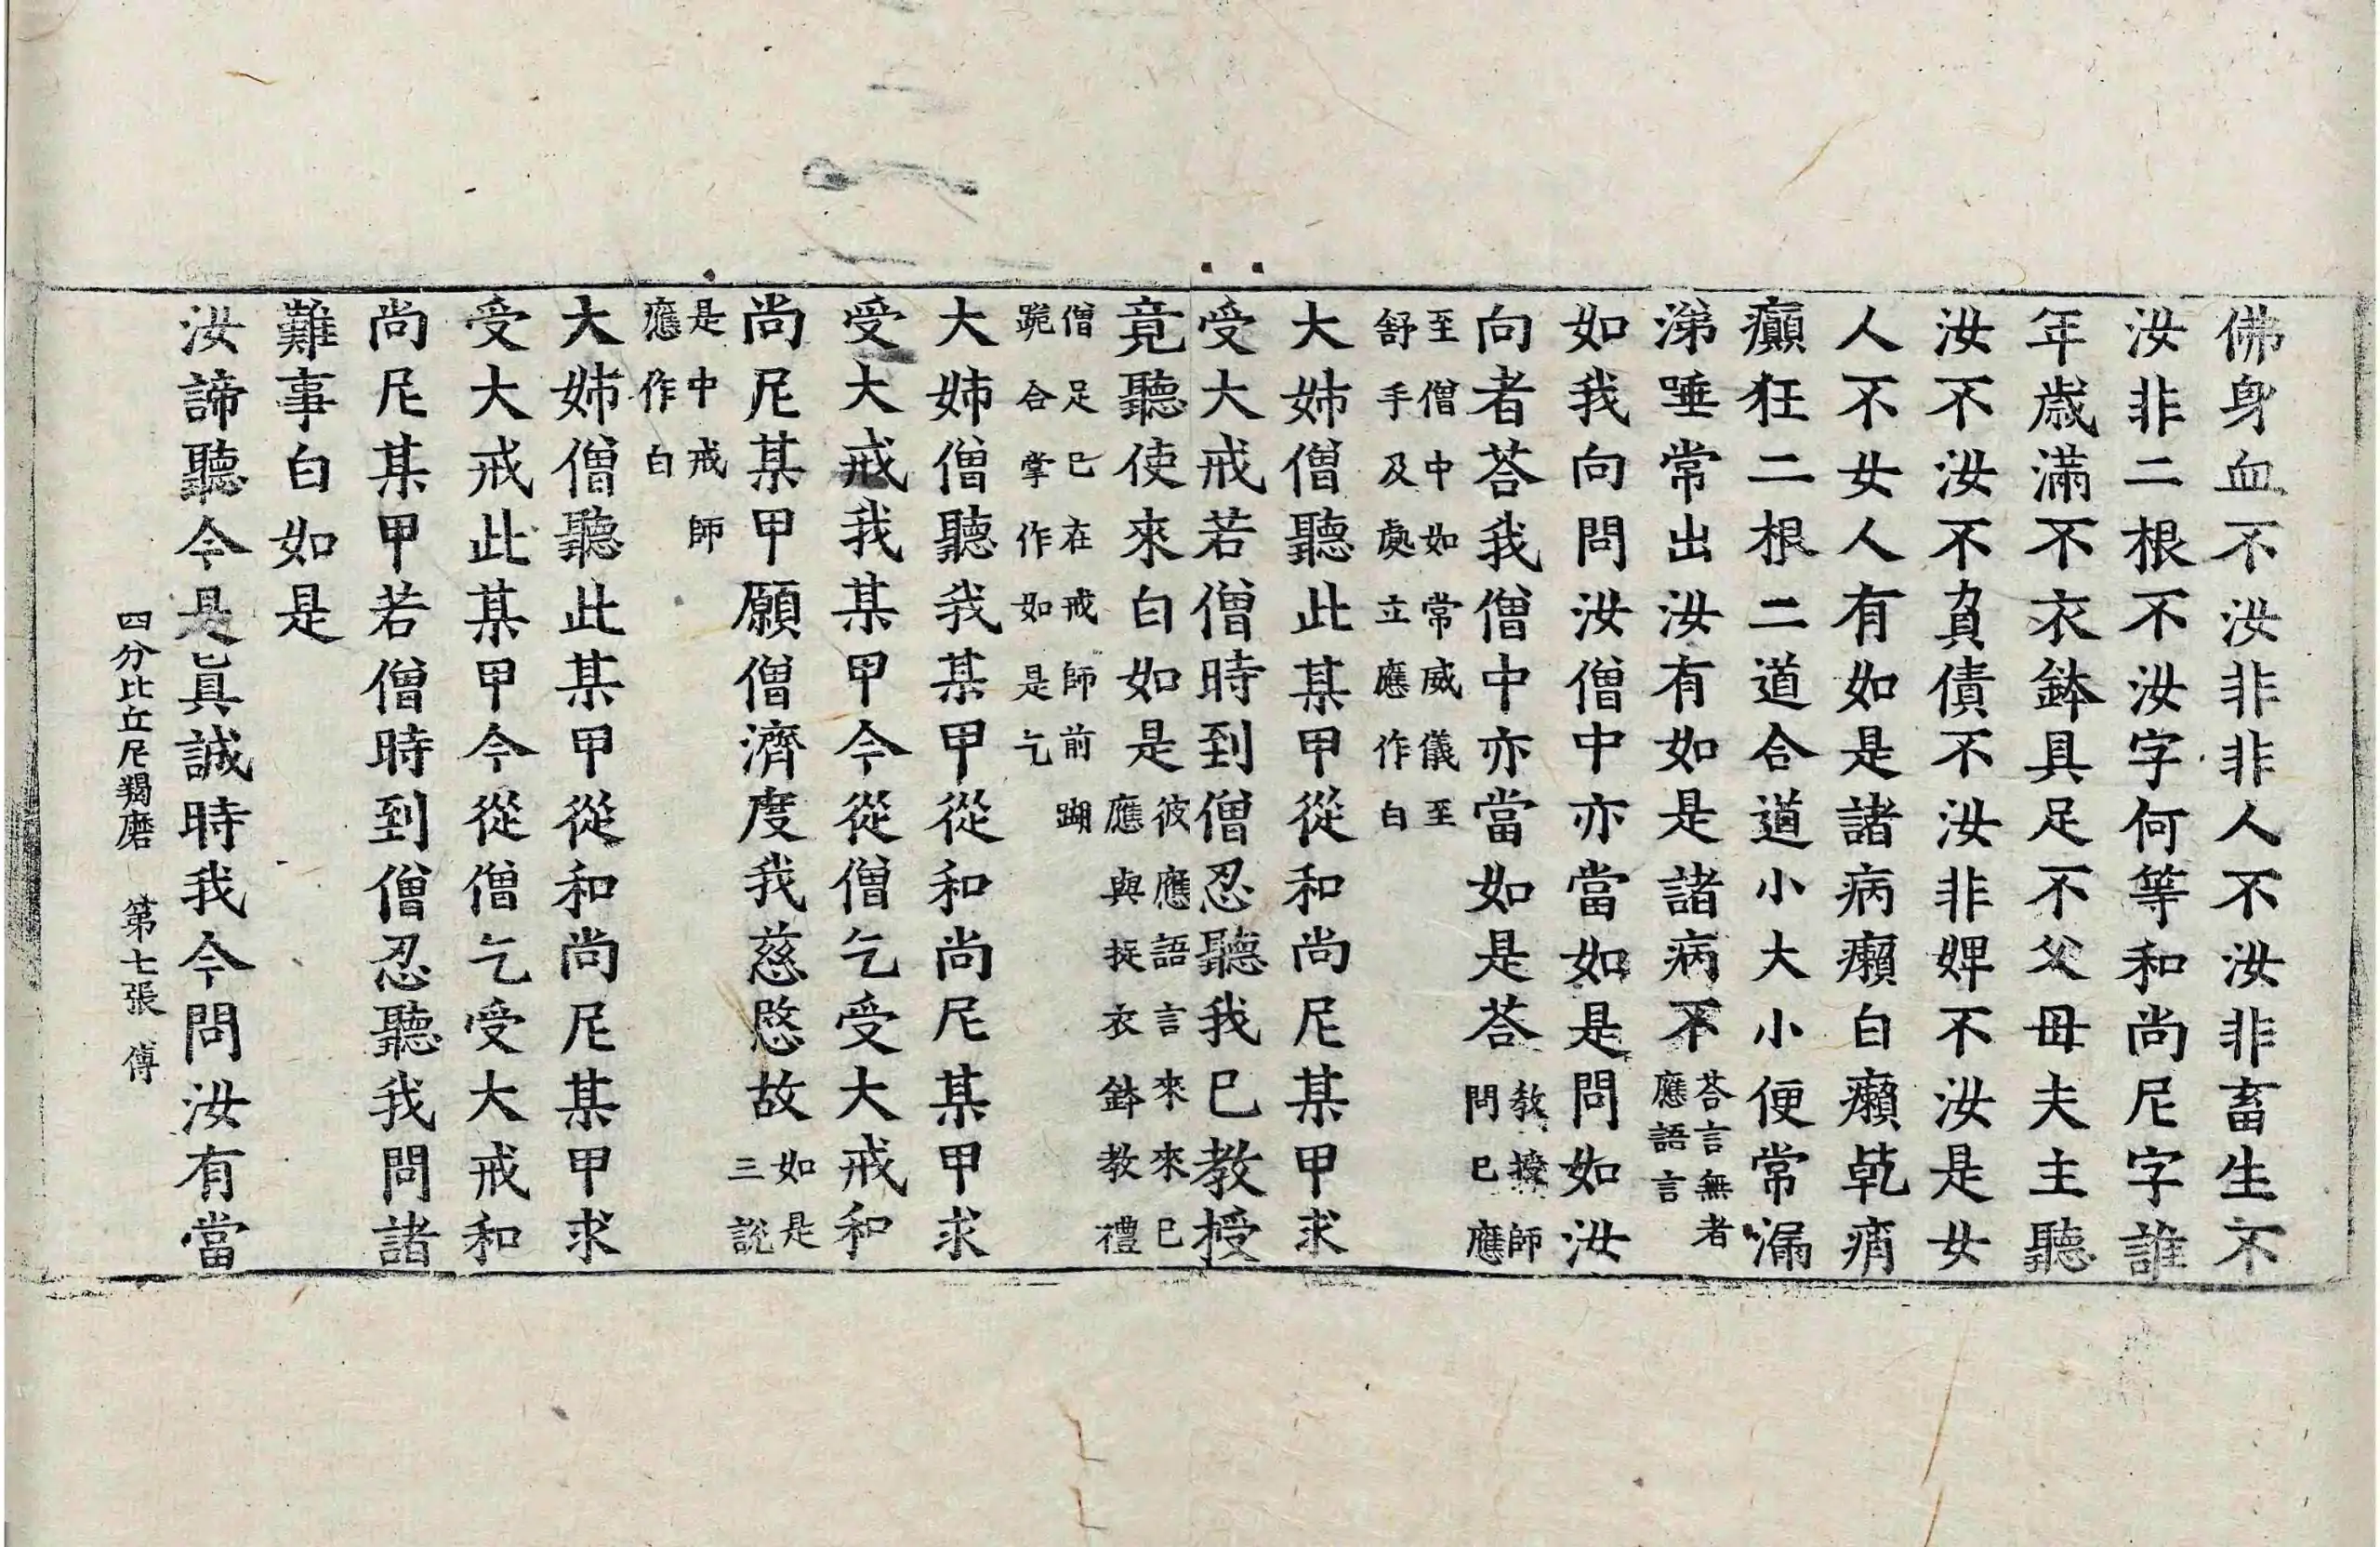 佛身血不汝非非人不汝非畜生不
汝非二根不汝字何等和尚尼字誰
年歲滿不衣鉢具足不父母夫主聽
汝不汝不負債不汝非婢不汝是女
人不女人有如是諸病癩白癩乾痟
癲狂二根二道合道小大小便常漏
涕唾常出汝有如是諸病不
荅言無者
應語言
如我向問汝僧中亦當如是問如汝
向者荅我僧中亦當如是荅
教授師
問已應
至僧中如常威儀至
舒手及處立應作白
大姉僧聽此某甲從和尚尼某甲求
受大戒若僧時到僧忍聽我已教授
竟聽使來白如是
彼應語言來來已
應與捉衣鉢教禮
僧足已在戒師前𨄔
跪合掌作如是乞
大姉僧聽我某甲從和尚尼某甲求
受大戒我某甲今從僧乞受大戒和
尚尼某甲願僧濟度我慈愍故
如是
三說
是中戒師
應作白
大姉僧聽此某甲從和尚尼某甲求
受大戒此某甲今從僧乞受大戒和
尚尼某甲若僧時到僧忍聽我問諸
難事白如是
汝諦聽今是真誠時我今問汝有當
四分比丘尼羯磨 第七張 傅